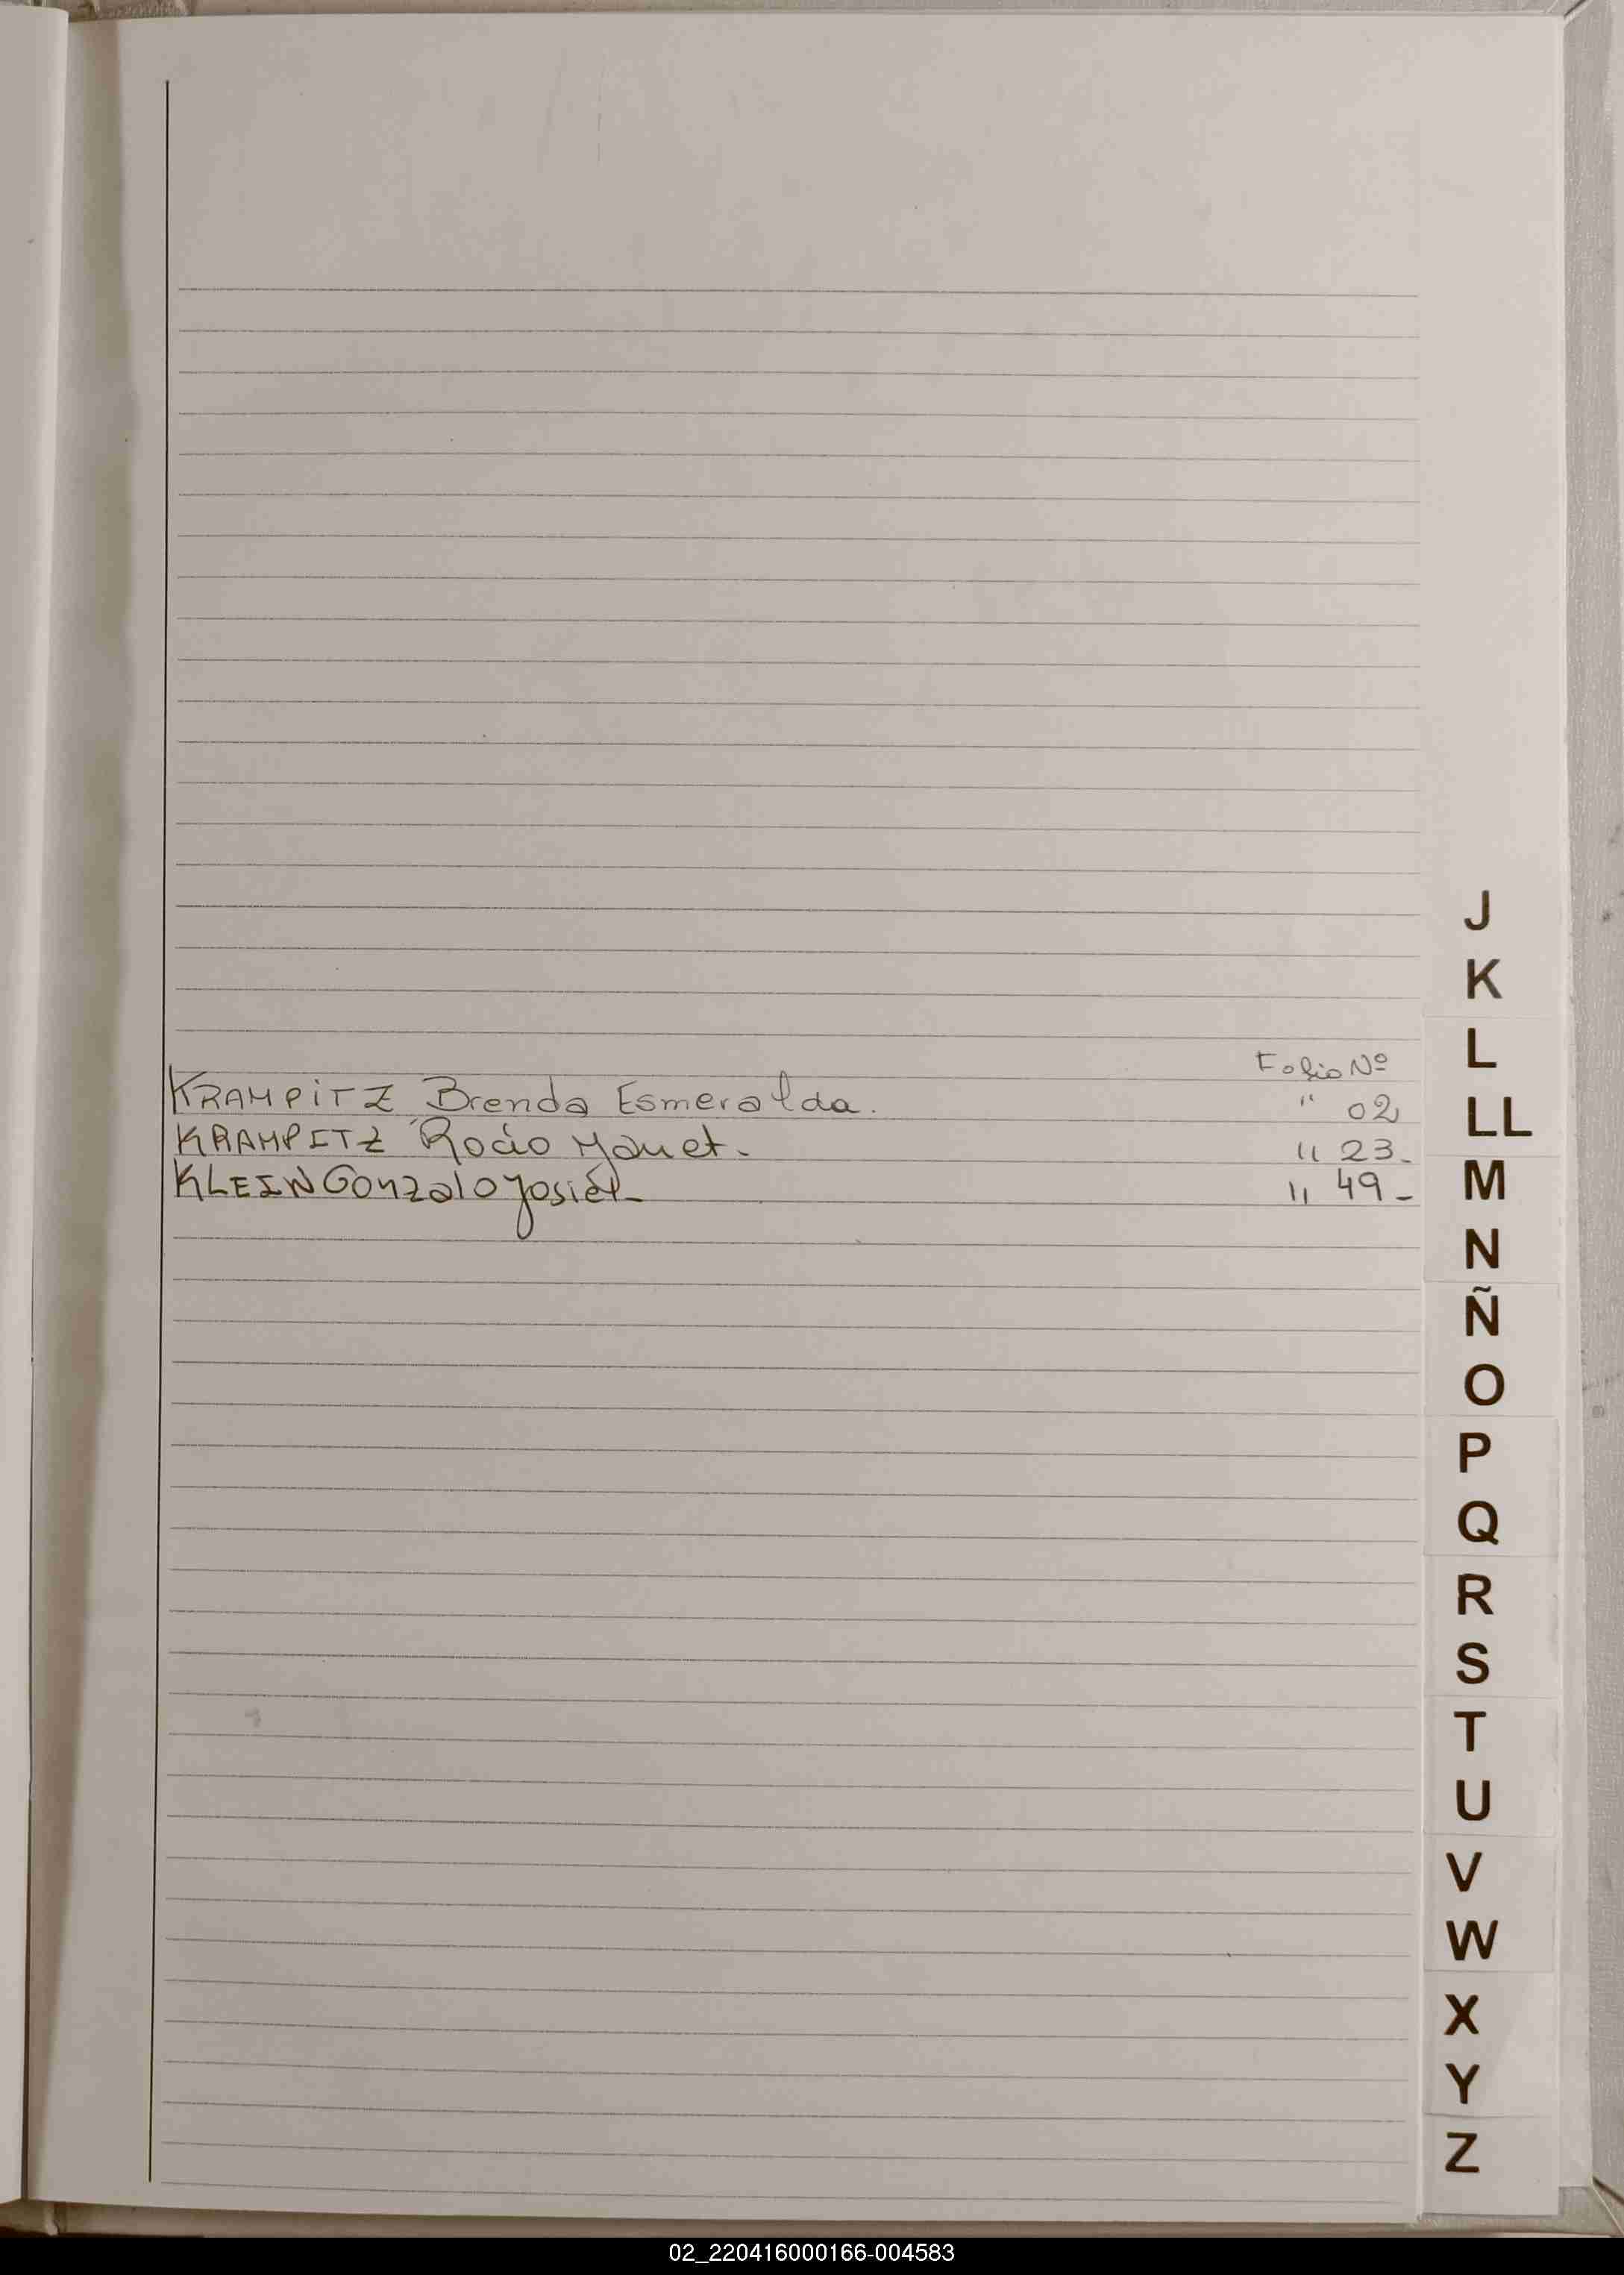 J
K
L
Folio Nº
KRAMPITZ Brenda Esmeralda. " 02
LL
KRAMPITZ Rocio Yanet. " 23.
KLEIN Gonzalo Josiél " 49 -
M
N
Ñ
O
P
Q
R
S
T
U
V
W
X
Y
Z
02_220416000166-004583